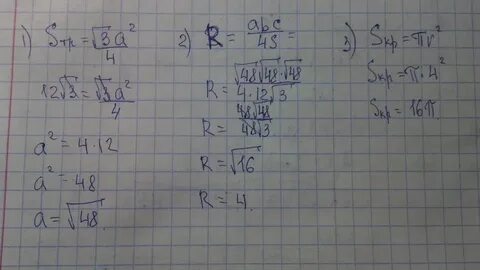 1) Sтр = √3a²/4
12√3 = √3a²/4
a² = 4·12
a² = 48
a = √48.
2) R = abc/4S =
R = √48√48·√48/4·12√3
R = 48√48/48√3
R = √16
R = 4.
3) Sкр = πr²
Sкр = π·4²
Sкр = 16π.